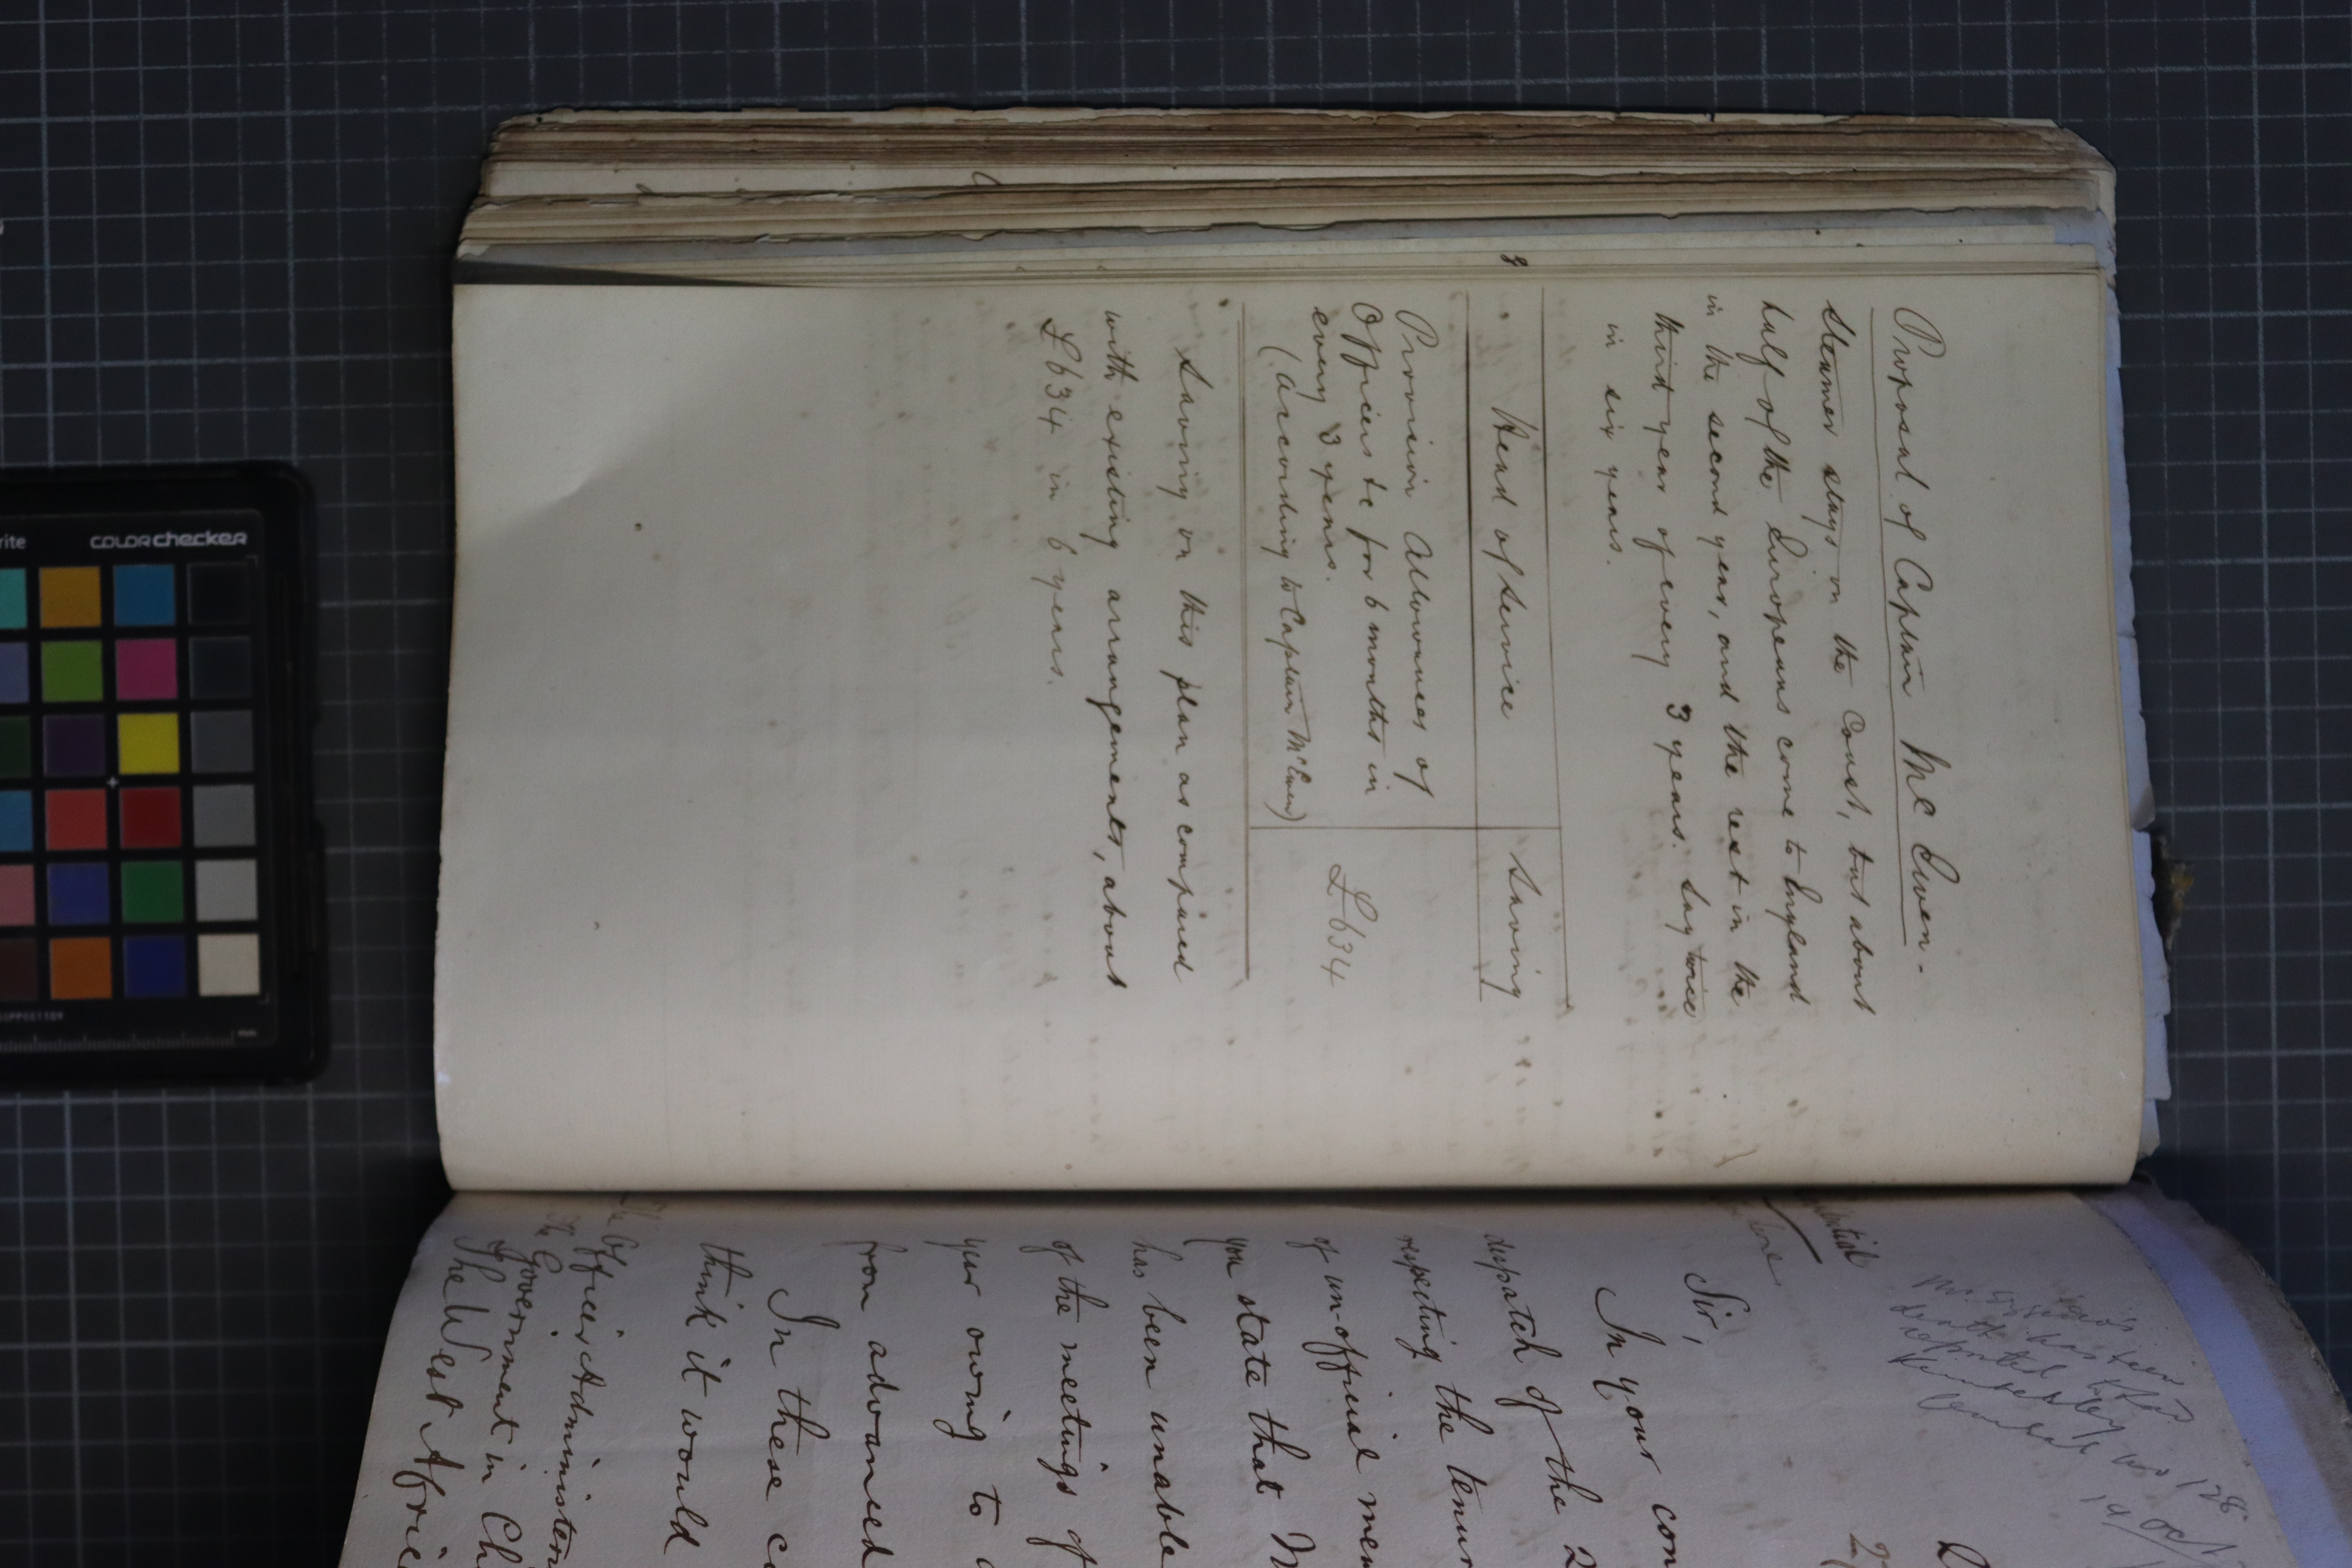 Proposal of Captain McEwen.
Steamer stays on the Coast, but about
half of the Europeans come to England
in the second year, and the rest in the
third year of every 3 years. Say twice
in six years.
Head of Service Saving
Provision Allowances of
Officers &c for 6 months in
every 3 years.
(According to Captain McEwen) £634
Saving on this plan as compared
with existing arrangements, about
£634 in 6 years.
8
death has been
reported
19 Oct
Sir,
In your con
despatch of the 2
respecting the tenur
of un-official mem
you state that M
has been unable
of the meetings of
your owing to
from advanced
In these c
think it would
The Officer Administer
the Government in Ch
The West Afric
COLORchecker